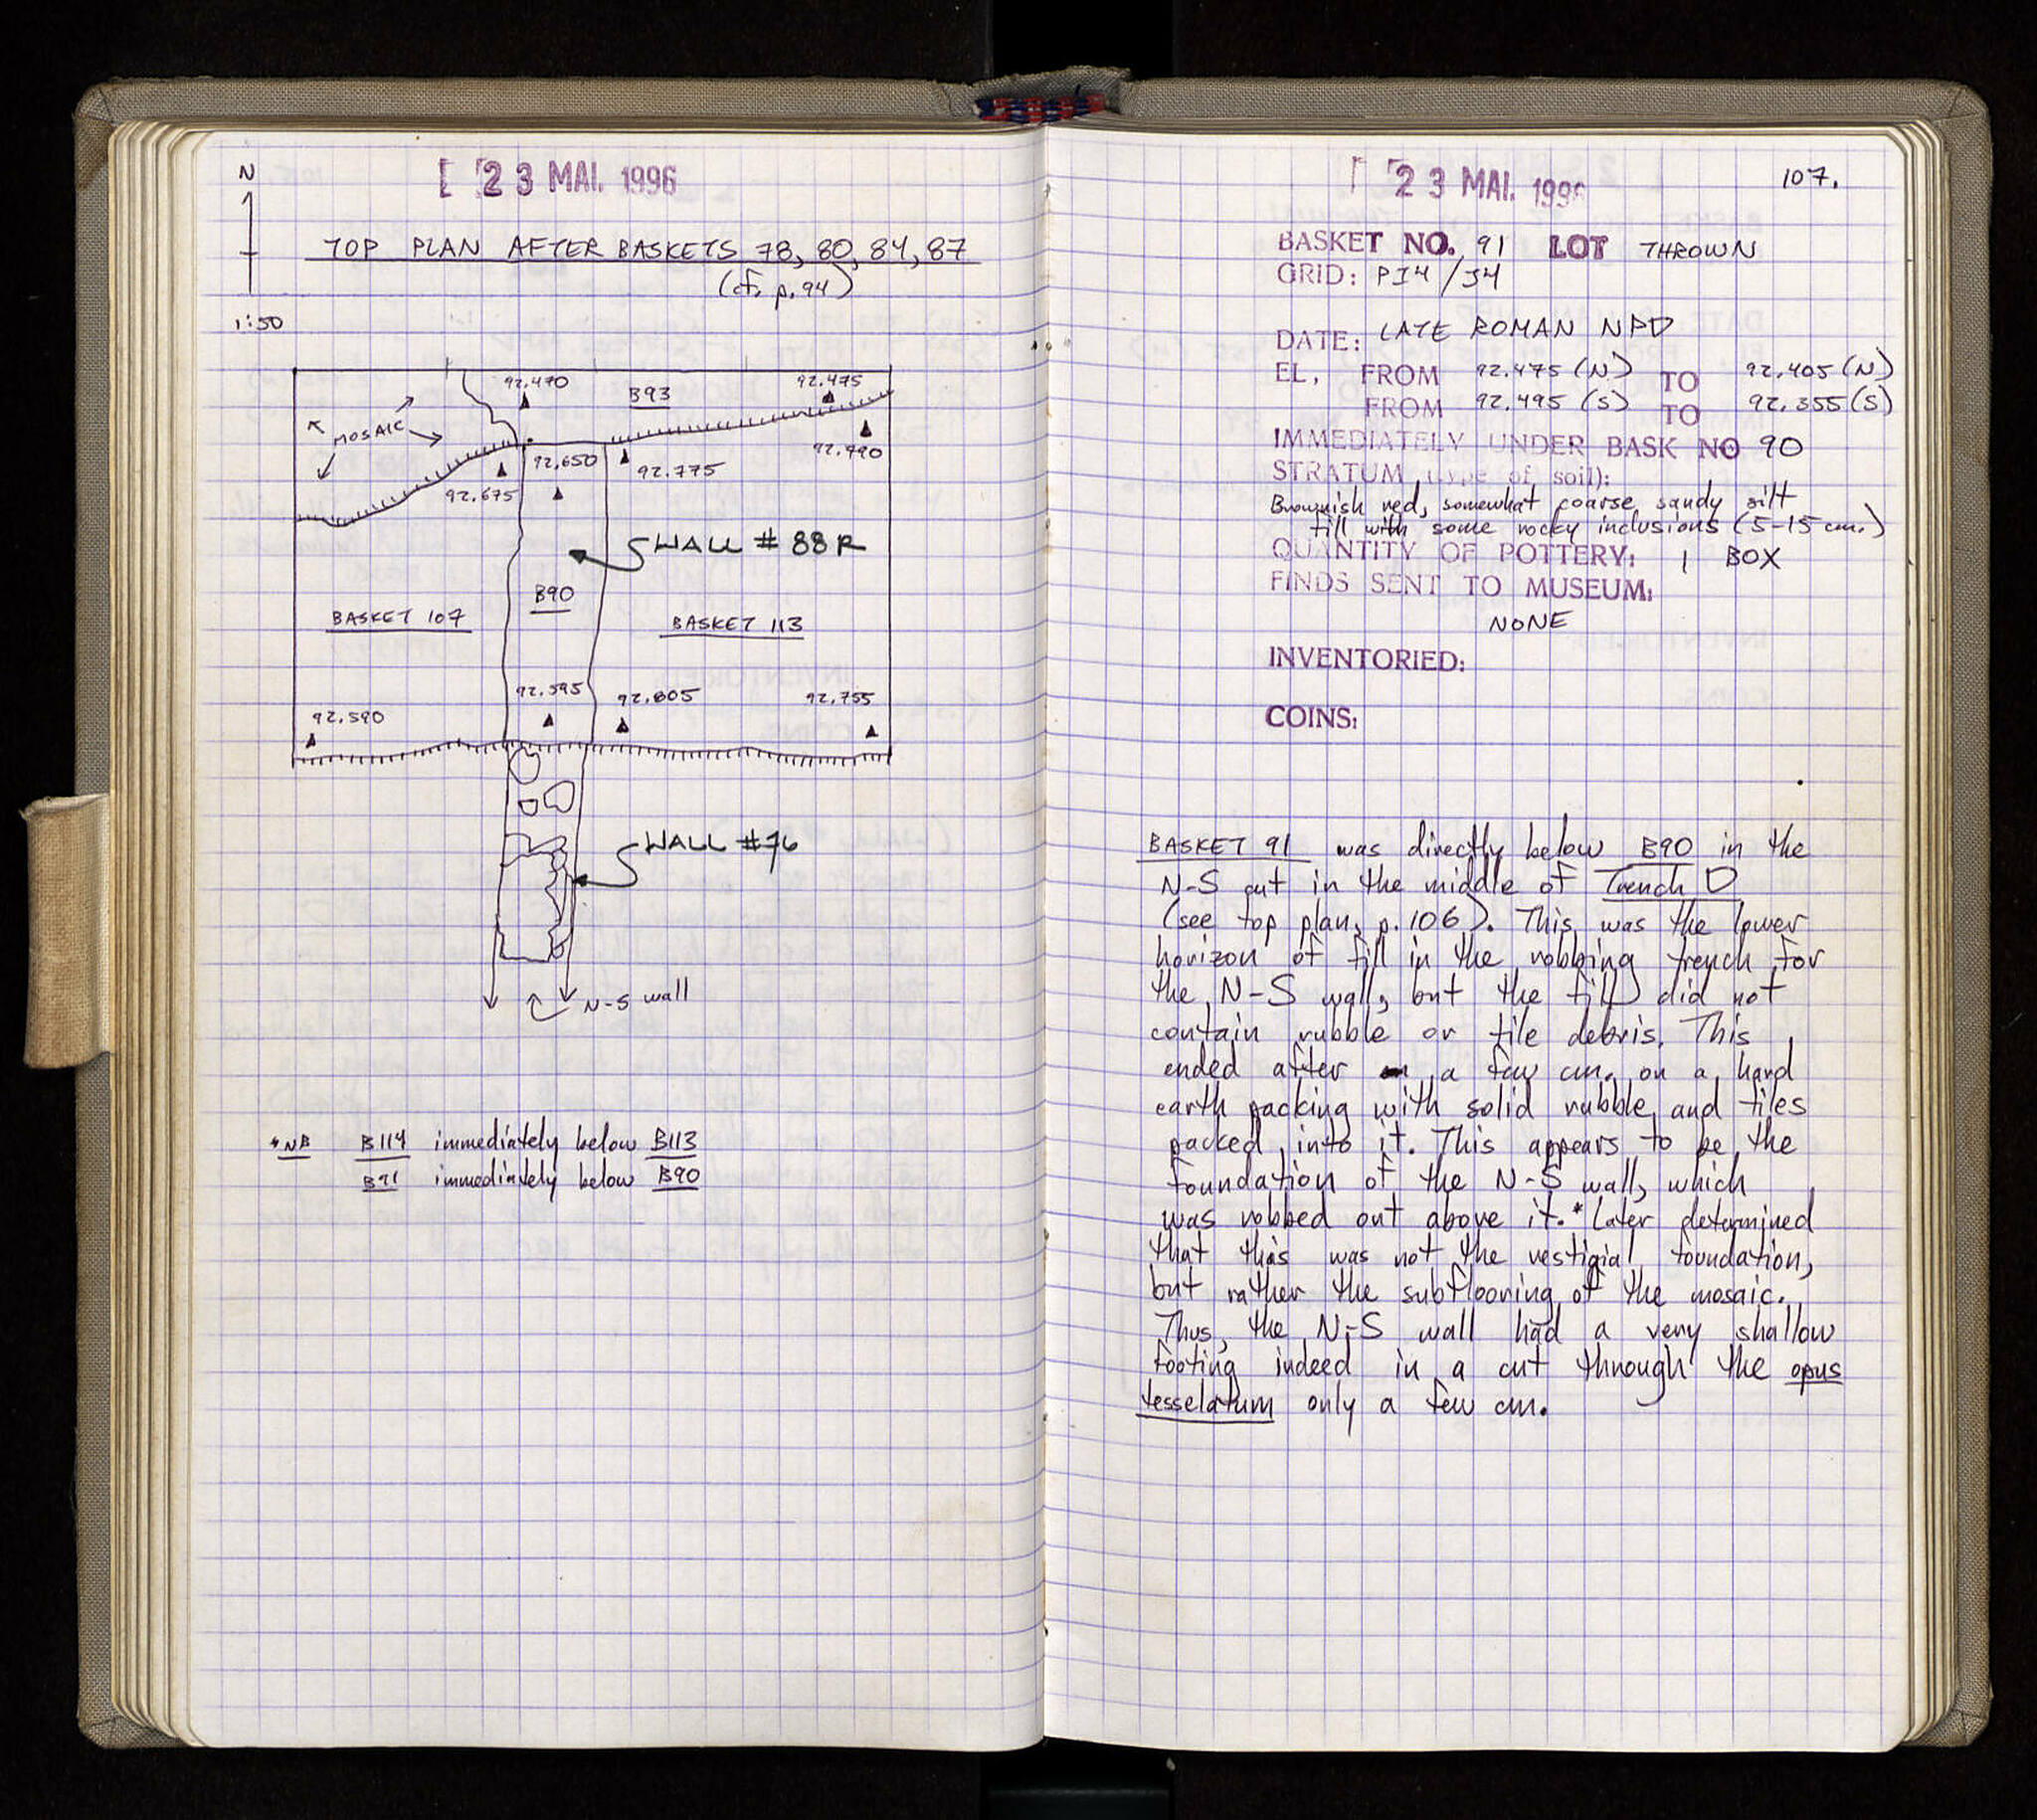 N
23 MAI. 1996
TOP PLAN AFTER BASKETS 78, 80, 84, 87
(cf. p. 94)
1:50
92.470
92.475
B93
MOSAIC
92.650
92.775
92.790
92.675
WALL # 88R
B90
BASKET 107
BASKET 113
92.595
92.805
92.755
92.590
WALL #76
N-S wall
*NB B114 immediately below B113
B91 immediately below B90
23 MAI. 1996
107.
BASKET NO. 91 LOT THROWN
GRID: PI4/J4
DATE: LATE ROMAN NPD
EL, FROM 92.475 (N) TO 92.405 (N)
FROM 92.495 (S) TO 92.355 (S)
IMMEDIATELY UNDER BASK NO 90
STRATUM (type of soil):
Brownish red, somewhat coarse sandy silt
fill with some rocky inclusions (5-15 cm.)
QUANTITY OF POTTERY: 1 BOX
FINDS SENT TO MUSEUM:
NONE
INVENTORIED:
COINS:
BASKET 91 was directly below B90 in the
N-S cut in the middle of Trench D
(see top plan, p. 106). This was the lower
horizon of fill in the robbing trench for
the N-S wall, but the fill did not
contain rubble or tile debris. This
ended after a few cm. on a hard
earth packing with solid rubble and tiles
packed into it. This appears to be the
foundation of the N-S wall, which
was robbed out above it. *Later determined
that this was not the vestigial foundation,
but rather the subflooring of the mosaic.
Thus, the N-S wall had a very shallow
footing indeed in a cut through the opus
tesselatum only a few cm.